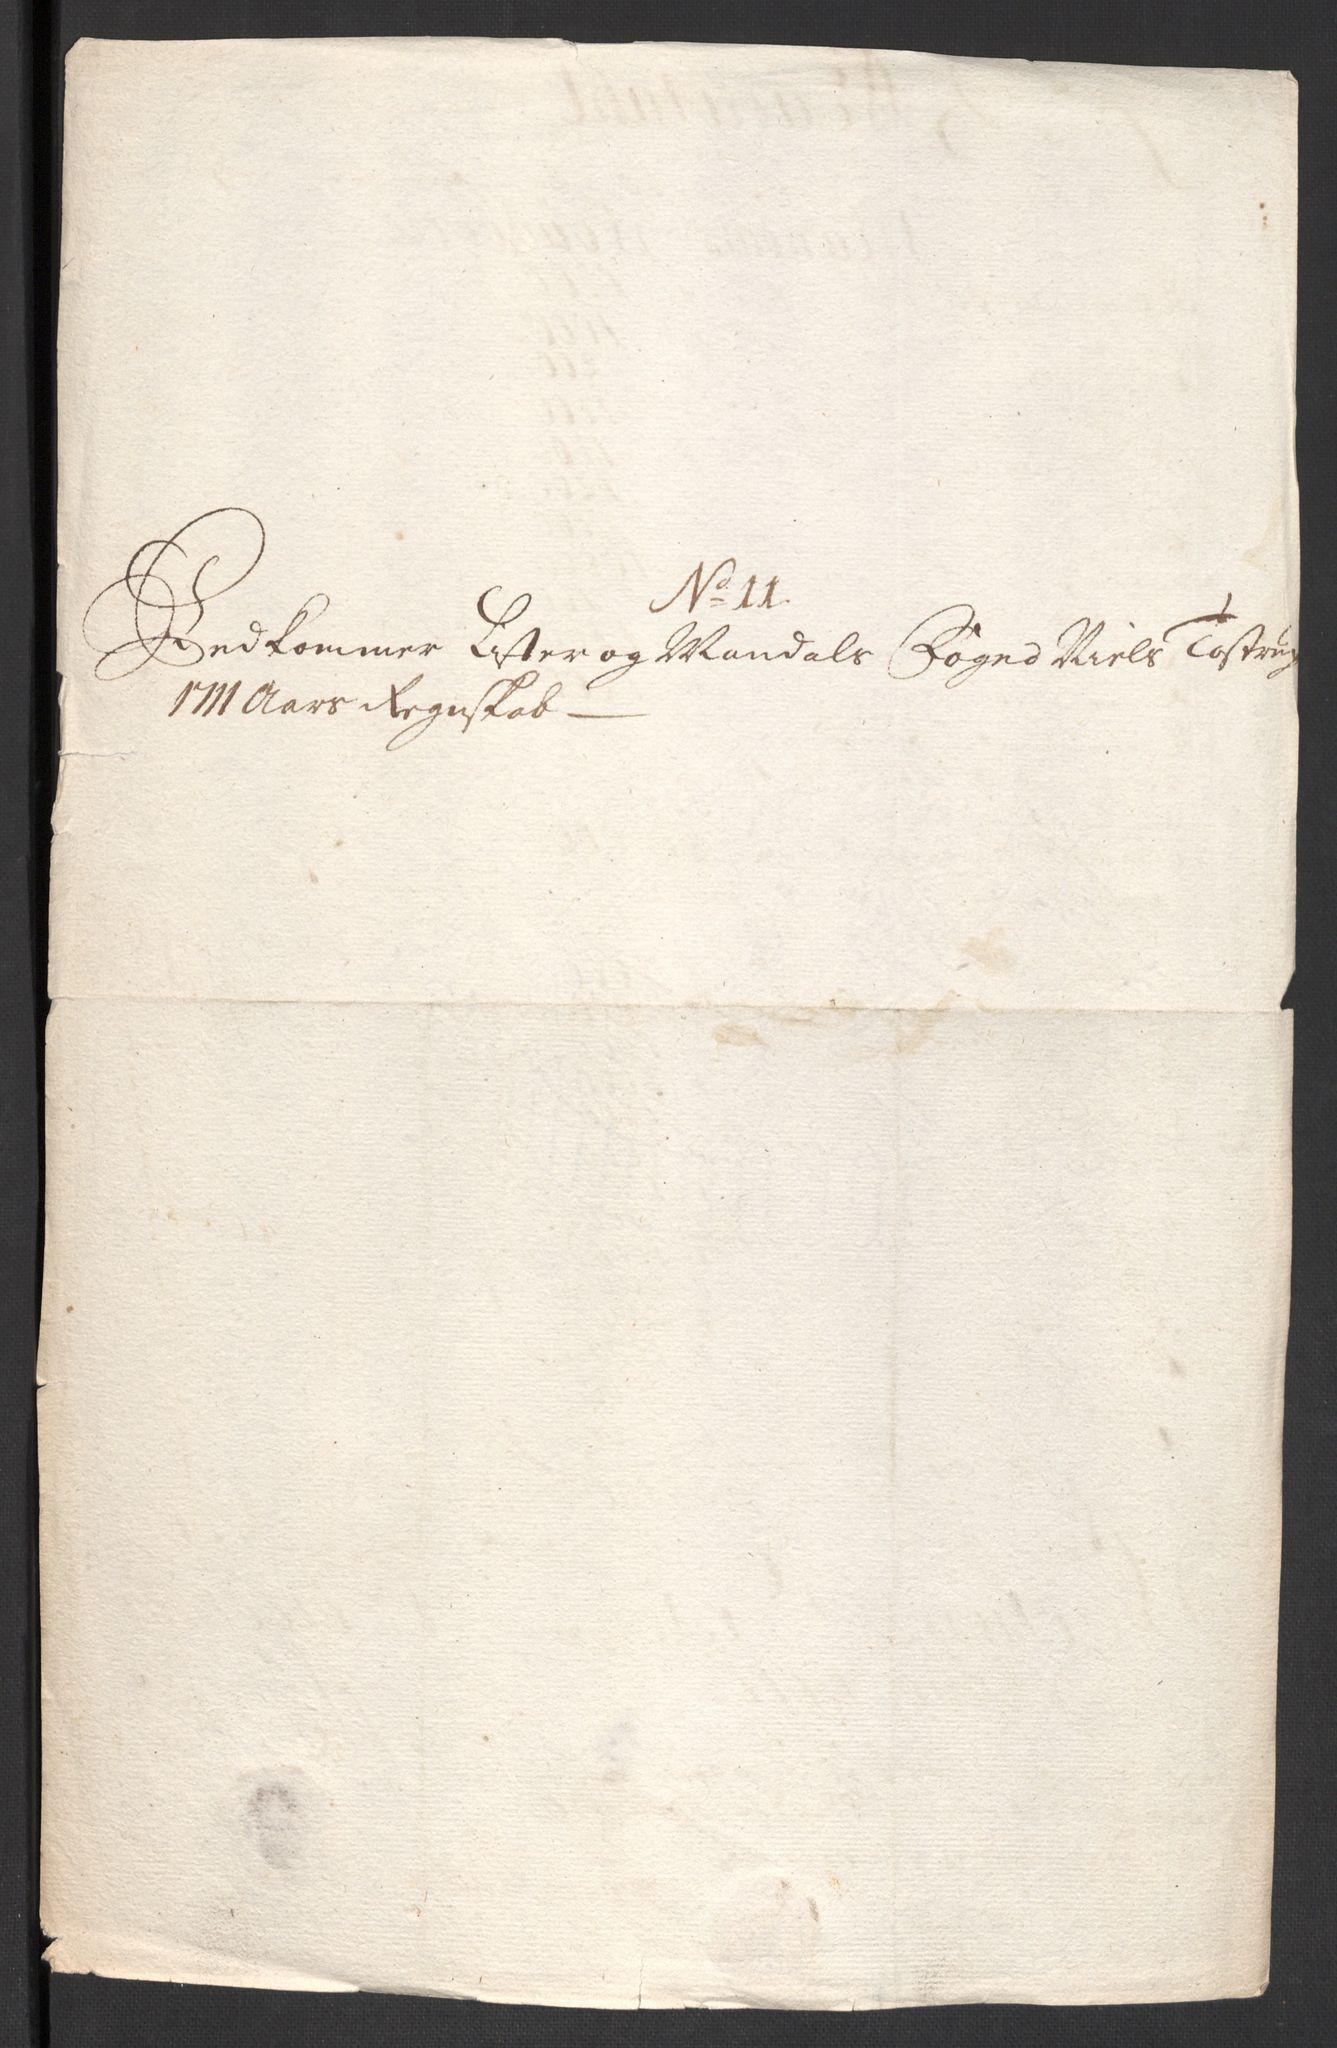 No 11.
Vedkommer Lister og Mandals Foged Niels Tostrup
1711 Aars Regnskab